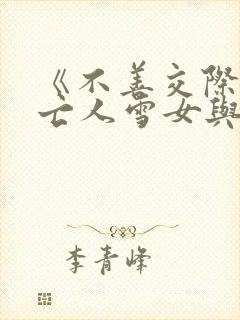 《不善交際
亡人雪女與
李青峰